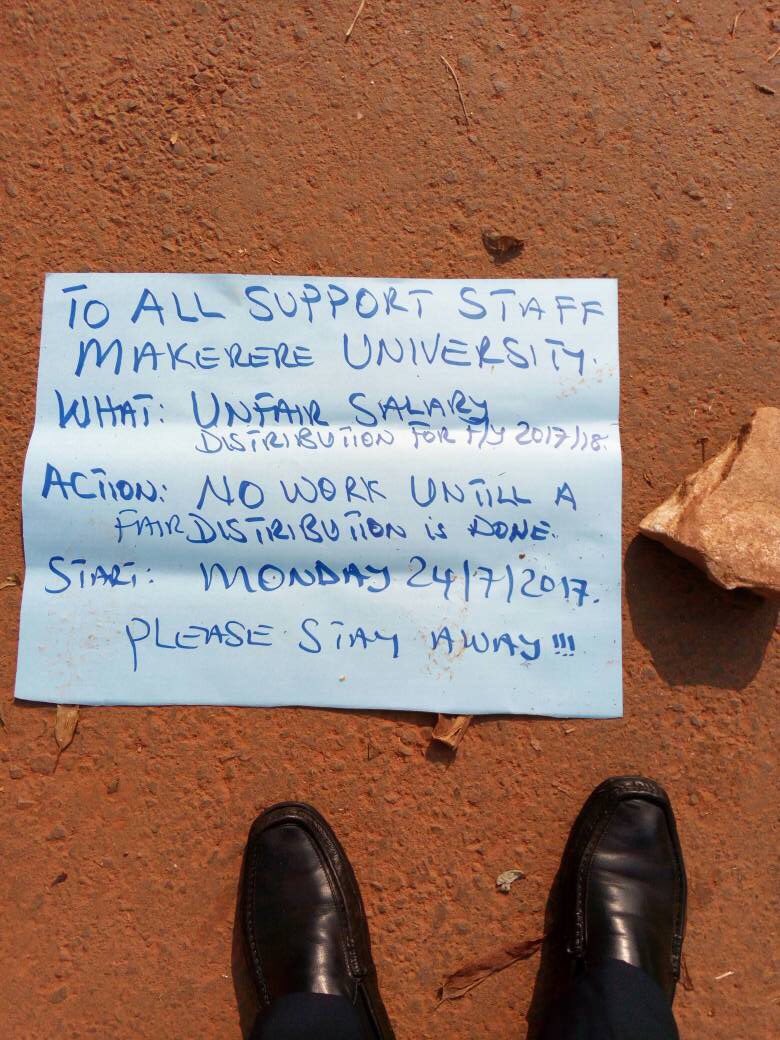 TO ALL SUPPORT STAFF
MAKERERE UNIVERSITY.
WHAT: UNFAIR SALARY
DISTRIBUTION FOR F/Y 2017/18.
ACTION: NO WORK UNTILL A
FAIR DISTRIBUTION IS DONE.
START: MONDAY 24/7/2017.
PLEASE STAY AWAY!!!